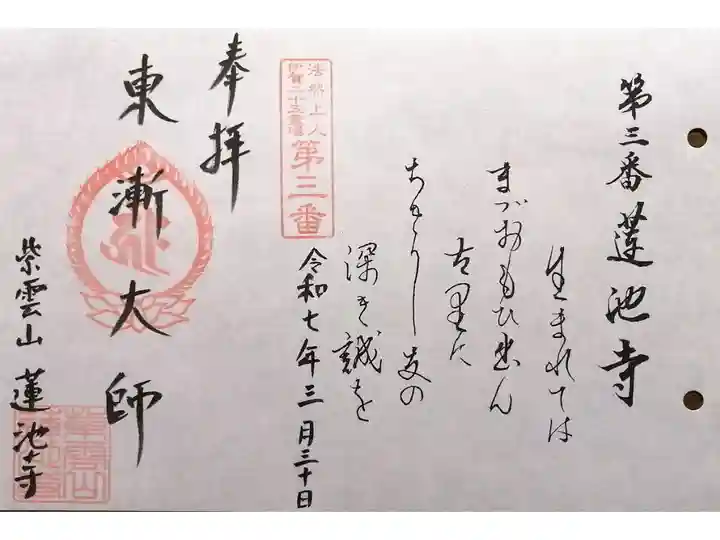 第三番蓮池寺
生まれては
まづおもひ出ん
古里に
ちぎりし友の
深き誠を
法然上人
伊賀二十五霊場
第三番
令和七年三月三十日
奉拝
東漸大師
紫雲山 蓮池寺